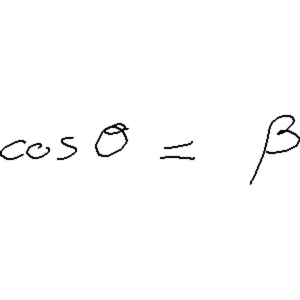 cos θ = β